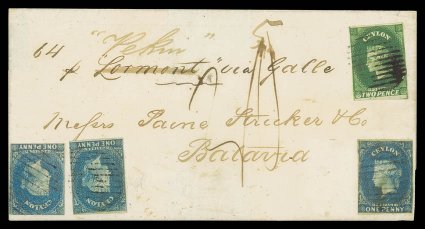 64 "Pekin"
p Lormont, via Galle
Messrs Paine Stricker & Co
Batavia
CEYLON
TWO PENCE
CEYLON
ONE PENNY
CEYLON
ONE PENNY
CEYLON
ONE PENNY